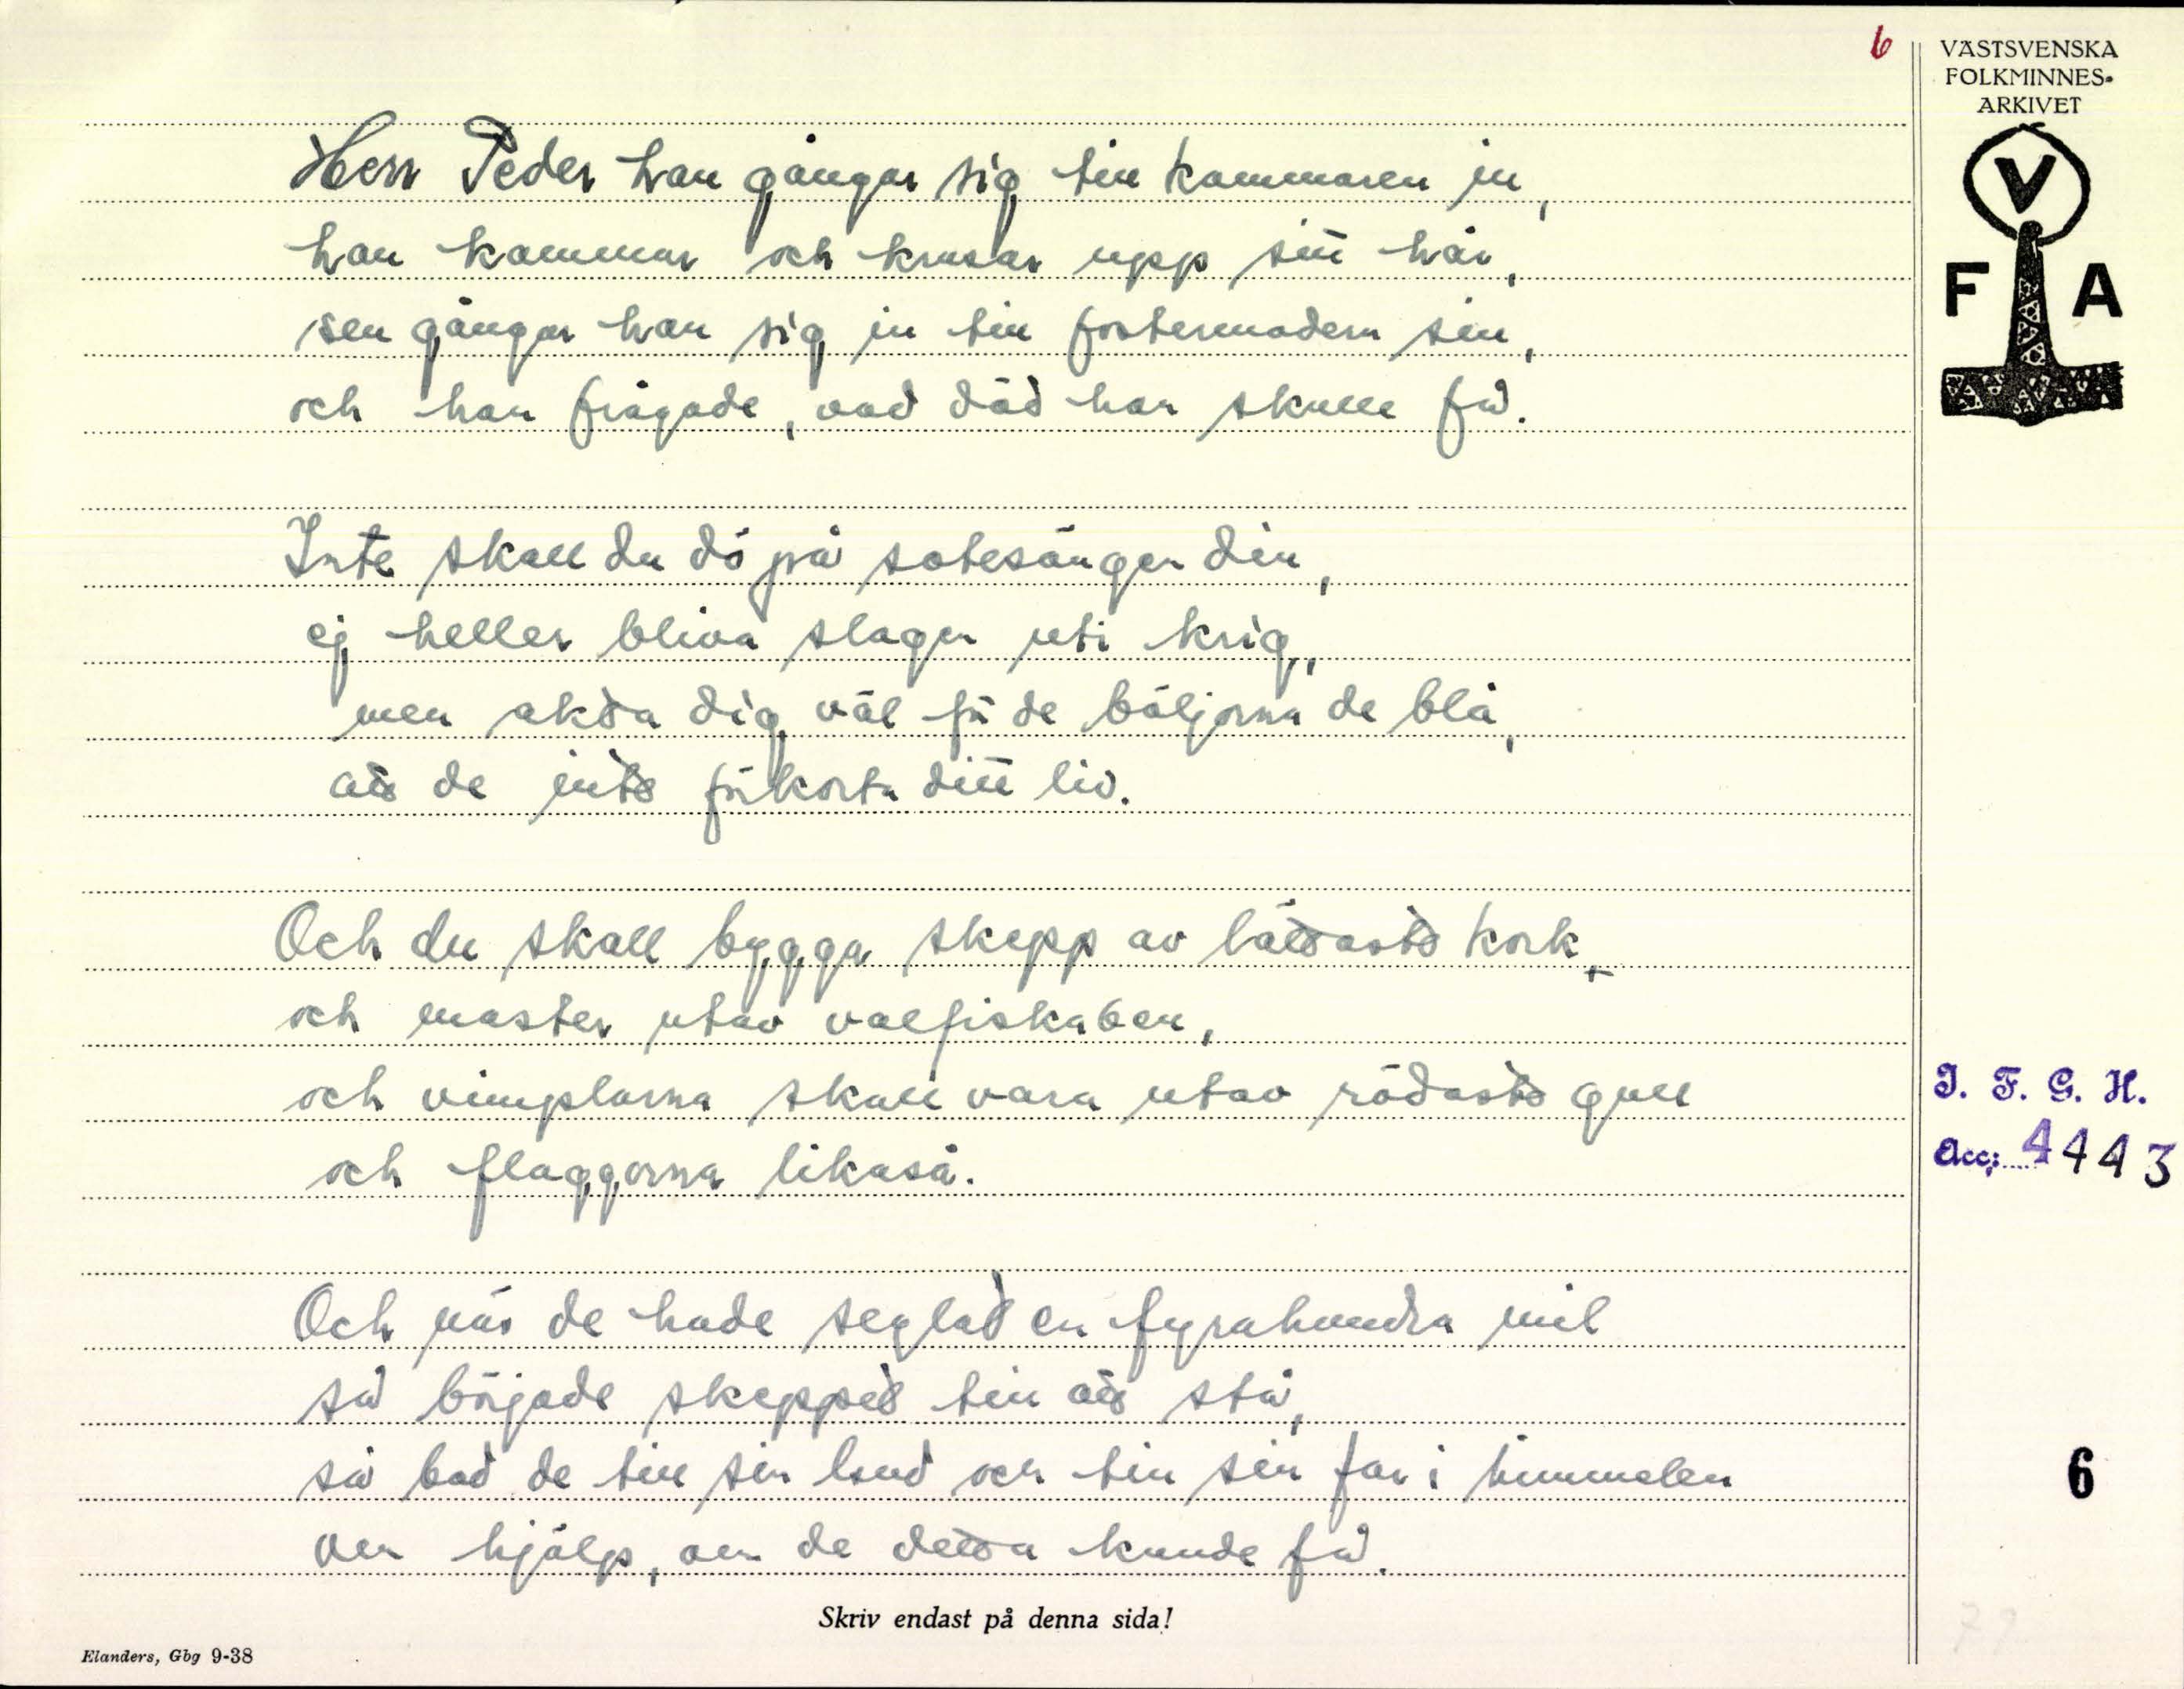 6
VÄSTSVENSKA
FOLKMINNES-
ARKIVET
V
F A
Herr Peder han gångar sig till kammaren in,
han kammar och krusar upp sitt hår,
sen gångar han sig in till fostermodern sin,
och han frågade, vad död han skulle få.
Inte skall du dö på sotesängen din,
ej heller bliva slagen uti krig,
men akta dig väl för de böljorna de blå,
att de inte förkorta ditt liv.
Och du skall bygga skepp av lättaste kork,
och master utav valfiskaben,
och vimplarna skall vara utav rödaste gull
och flaggorna likaså.
Och när de hade seglat en fyrahundra mil
så började skeppet till att stå,
så bad de till sin Gud och till sin far i himmelen
om hjälp, om de detta kunde få.
I. F. G. H.
Acc: 4443
6
Skriv endast på denna sida!
Elanders, Gbg 9-38